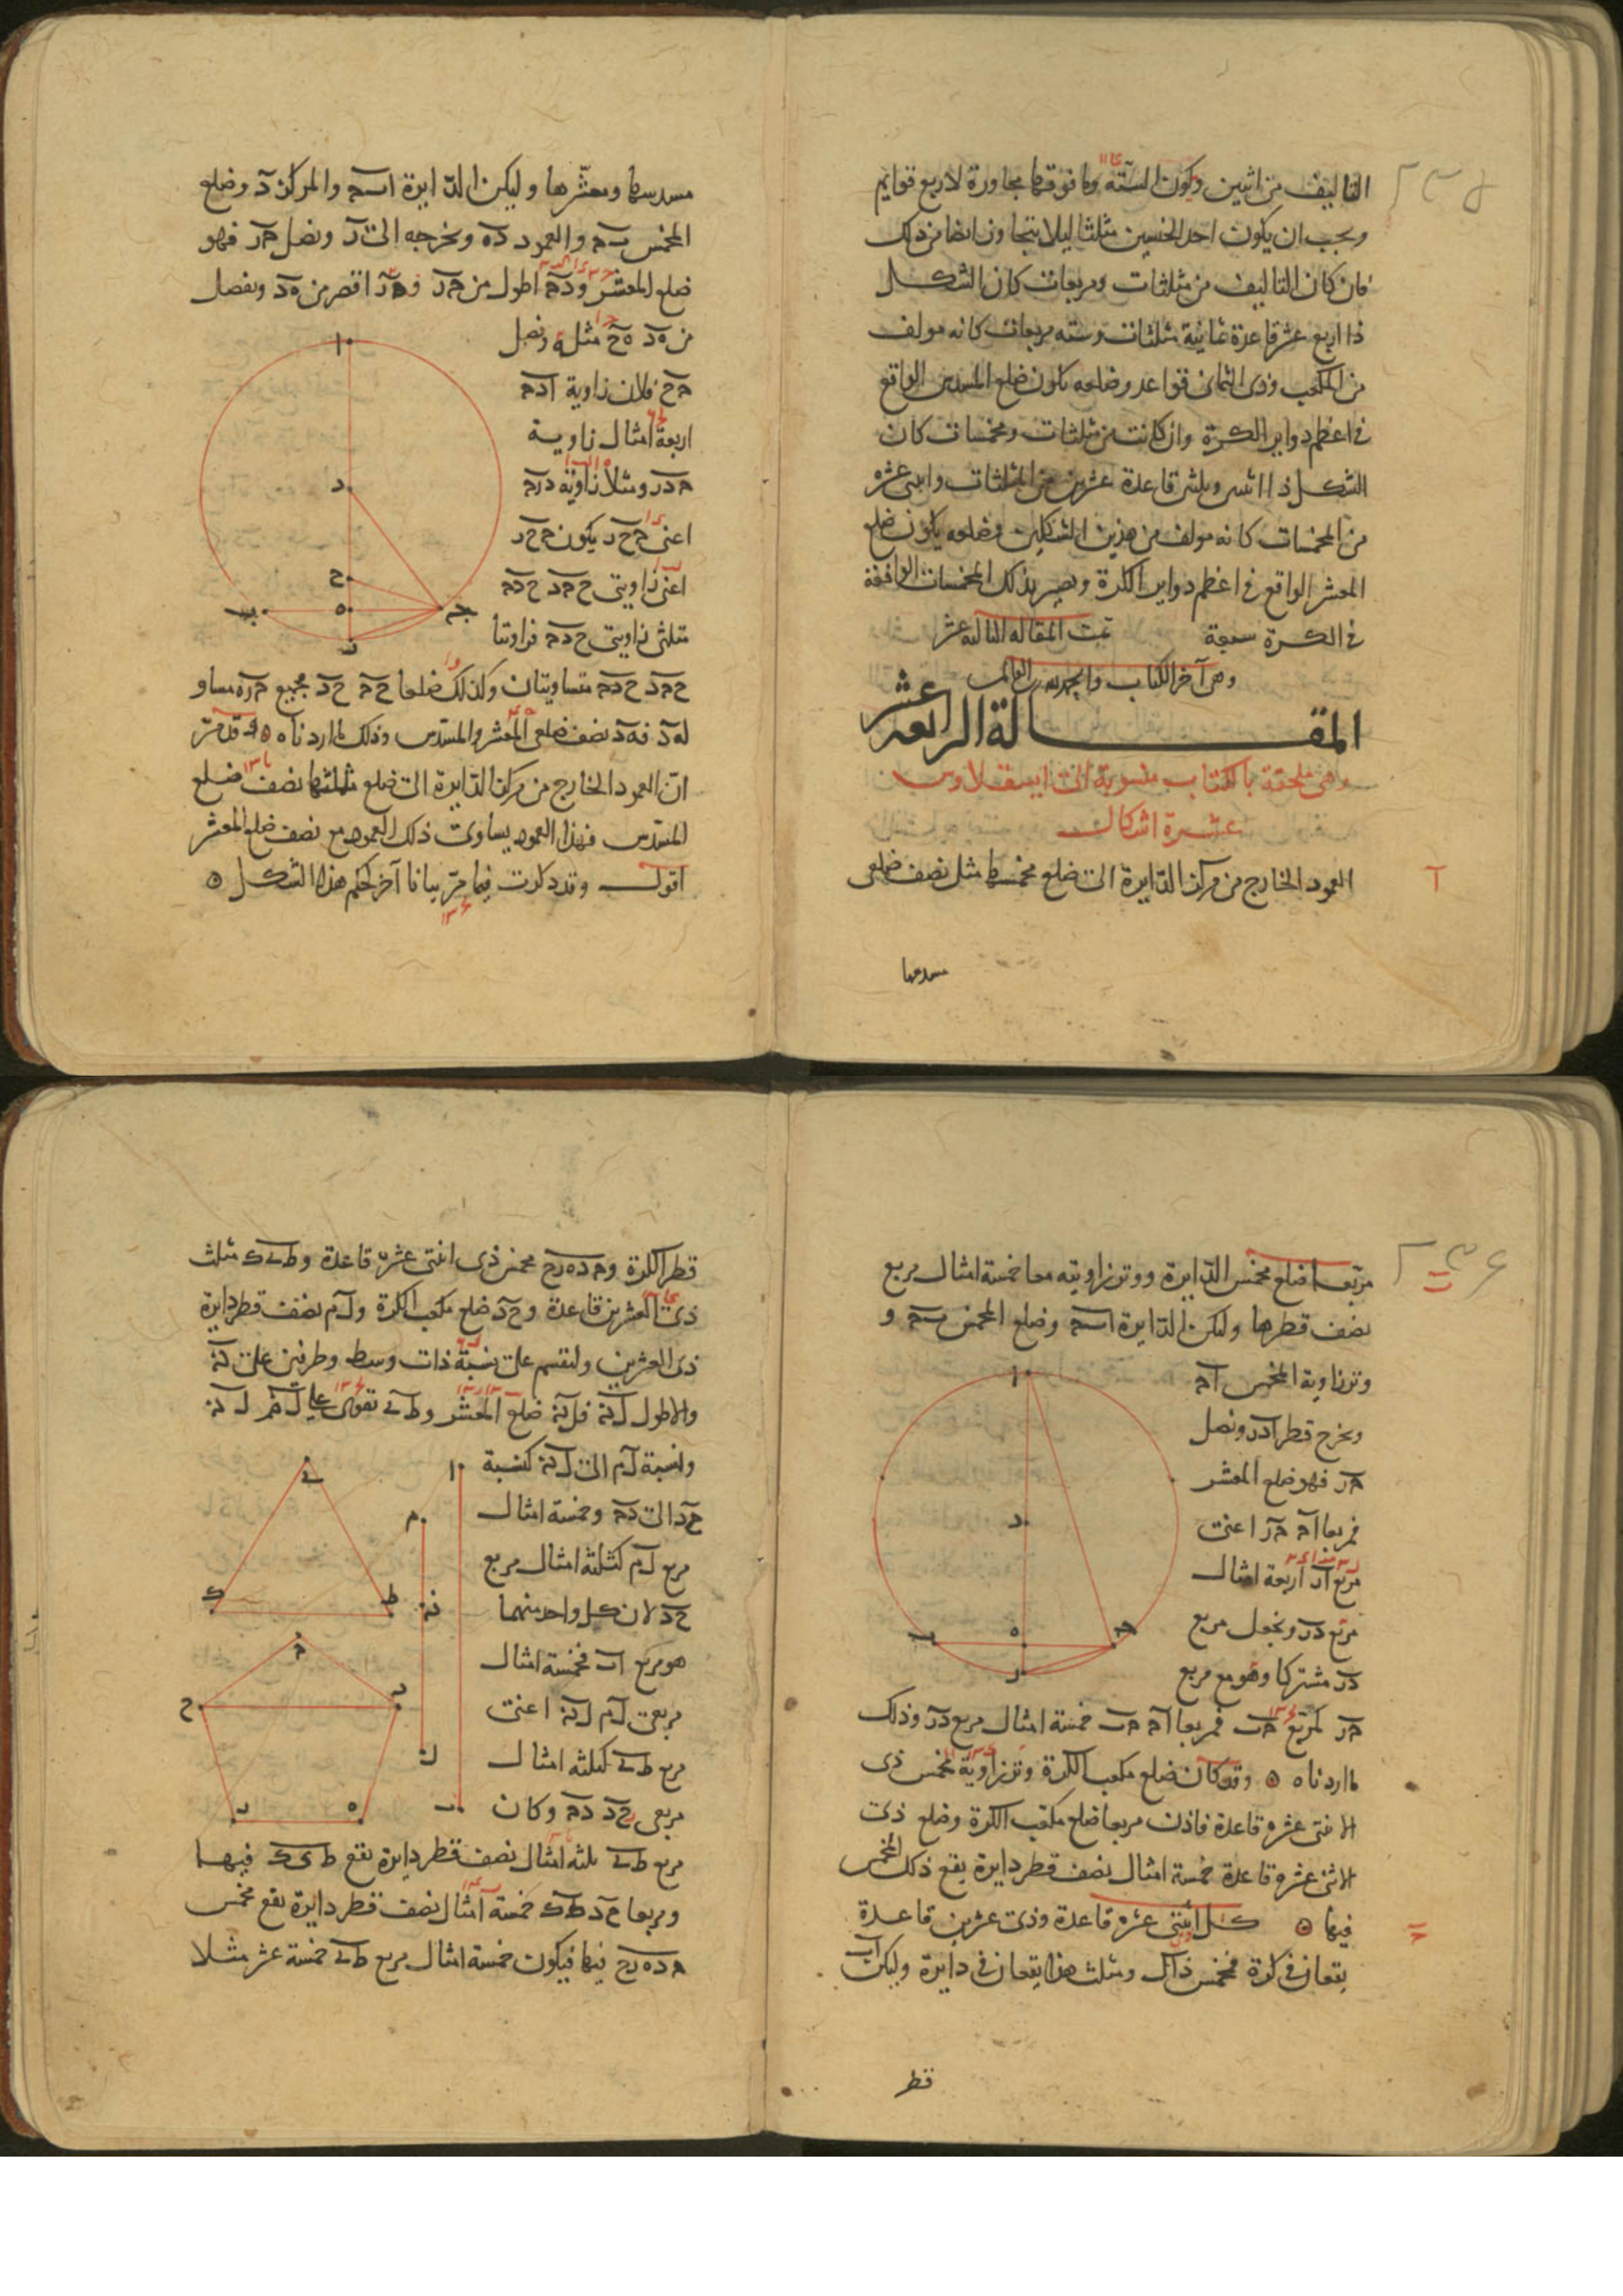 التاليف من اثنين وكون الستة وما فوقها مجاورة لاربع قوايم
ويجب ان يكون احد الجنسين مثلثا ليلا يتجاوز ايضا من ذلك
فان كان التاليف من مثلثات ومربعات كان الشكل
ذا اربع عشر قاعدة ثمانية مثلثات وسته مربعات كانه مولف
من المكعب وذى الثمان قواعد وضلعه يكون ضلع المسدس الواقع
فى اعظم دواير الكرة وان كانت من مثلثات ومخمسات كان
الشكل ذا اثنين وثلثين قاعدة عشرين من المثلثات واثنى عشره
من المخمسات كانه مولف من هذين الشكلين وضلعه يكون ضلع
المعشر الواقع فى اعظم دواير الكرة ويصير بذلك المجسمات الواقعة
فى الكرة سبعة تمت المقاله الثالثه عشر
وهى آخر الكتاب والحمد لله رب العالمين
المقالة الرابعة عشر
وهى ملحقة بالكتاب منسوبة الى ابسقلاوس
عشرة اشكال
آ
العمود الخارج من مركز الدايرة الى ضلع مخمسها مثل نصف ضلعى
مسدسها
مسدسها ومعشرها وليكن الدايرة ابـ جـ والمركز د وضلع
المخمس بـ جـ والعمود ده ونخرجه الى ر ونصل جـ ر فهو
ضلع المعشر ود جـ اطول من جـ ر فه ر اقصر من ه د ونفصل
من ه د ه ح مثله ونصل
جـ ح فلان زاوية ا د جـ
اربعة امثال زاوية
جـ د ر ومثلا زاوية د ر جـ
اعنى جـ ح ر يكون جـ ح ر
اعنى زاويتى ح جـ د ح د جـ
مثلى زاويتى ح د جـ فزاويتا
ح جـ د ح د جـ متساويتان وكذلك ضلعا ح جـ ح د فجميع جـ ر ه مساو
له د فه د نصف ضلعى المعشر والمسدس وذلك ما اردناه وقد مر
ان العمود الخارج من مركز الدايرة الى ضلع مثلثها نصف ضلع
المسدس فهذا العمود يساوى ذلك العمود مع نصف ضلع المعشر
اقول وقد ذكرت فيما مر بيانا آخر لحكم هذا الشكل
ب
مربعا ضلع مخمس الدايرة ووتر زاويته معا خمسة امثال مربع
نصف قطرها وليكن الدايرة ابـ جـ وضلع المخمس بـ جـ و
وتر زاوية المخمس ا جـ
ونخرج قطر ا د ر ونصل
جـ ر فهو ضلع المعشر
فمربعا ا جـ جـ ر اعنى
مربع ا ر اربعة امثال
مربع د ر ونجعل مربع
د ر مشتركا وهو مع مربع
جـ ر كمربع جـ ب فمربعا ا جـ جـ ب خمسة امثال مربع د ر وذلك
ما اردناه وقد كان ضلع مكعب الكرة وتر زاوية مخمس ذى
الاثنى عشره قاعدة فاذن مربعا ضلع مكعب الكرة وضلع ذى
الاثنى عشره قاعدة خمسة امثال نصف قطر دايرة يقع ذلك المخمس
فيها كل اثنى عشره قاعدة وذى عشرين قاعدة
يقعان فى كرة فمخمس ذاك ومثلث هذا يقعان فى دايرة وليكن ا ب
قطر
قطر الكرة و جـ د ه ر ح مخمس ذى اثنتى عشره قاعدة و ط ى ك مثلث
ذى العشرين قاعدة و ح د ضلع مكعب الكرة و ل م نصف قطر دايرة
ذى العشرين ولنقسم على نسبة ذات وسط وطرفين على ن
والاطول ل ن فل ن ضلع المعشر و ط ى تقوى على ل م ل ن
ونسبة ل م الى ل ن كنسبة
ح د الى د جـ وخمسة امثال
مربع ل م كثلثة امثال مربع
ح د لان كل واحد منهما
هو مربع ا ب فخمسة امثال
مربعى ل م ل ن اعنى
مربع ط ى كثلثه امثال
مربعى ح د د جـ وكان
مربع ط ى ثلثه امثال نصف قطر دايرة يقع ط ى ك فيها
ومربعا ح د د جـ خمسة امثال نصف قطر دايرة يقع مخمس
جـ د ه ر ح فيها فيكون خمسة امثال مربع ط ى خمسة عشر مثلا